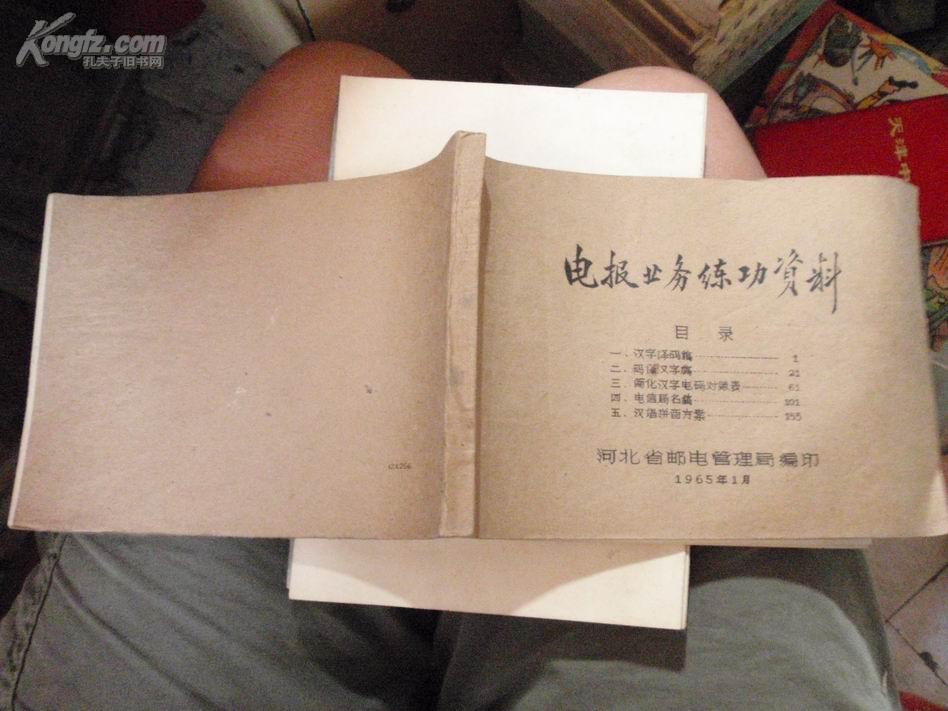 Kongfz.com
孔夫子旧书网
天津市
电报业务练功资料
目 录
一、汉字译码篇 1
二、码译汉字篇 21
三、简化汉字电码对照表 61
四、电信局名篇 101
五、汉语拼音方案 155
河北省邮电管理局编印
1965年1月